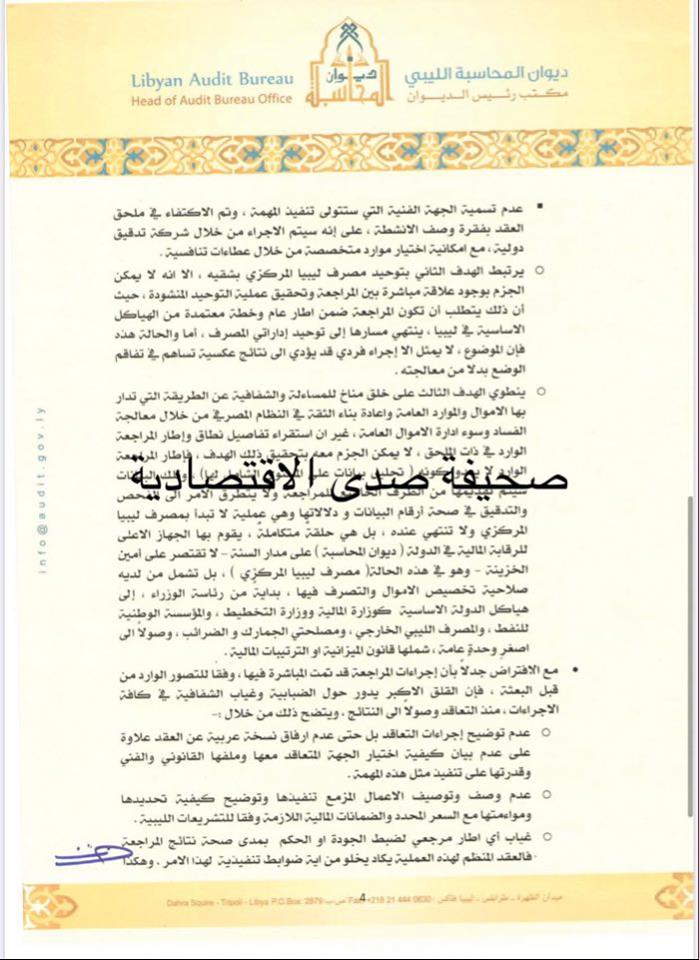 Libyan Audit Bureau
Head of Audit Bureau Office
ديوان المحاسبة
ديوان المحاسبة الليبي
مكتب رئيس الديوان
▪ عدم تسمية الجهة الفنية التي ستتولى تنفيذ المهمة ، وتم الاكتفاء في ملحق
العقد بفقرة وصف الانشطة ، على إنه سيتم الاجراء من خلال شركة تدقيق
دولية ، مع امكانية اختيار موارد متخصصة من خلال عطاءات تنافسية .
○ يرتبط الهدف الثاني بتوحيد مصرف ليبيا المركزي بشقيه ، الا انه لا يمكن
الجزم بوجود علاقة مباشرة بين المراجعة وتحقيق عملية التوحيد المنشودة ، حيث
أن ذلك يتطلب أن تكون المراجعة ضمن اطار عام وخطة معتمدة من الهياكل
الاساسية في ليبيا ، ينتهي مسارها إلى توحيد إداراتي المصرف ، أما والحالة هذه
فإن الموضوع ، لا يمثل الا إجراء فردي قد يؤدي الى نتائج عكسية تساهم في تفاقم
الوضع بدلا من معالجته .
○ ينطوي الهدف الثالث على خلق مناخ للمساءلة والشفافية عن الطريقة التي تدار
بها الاموال والموارد العامة واعادة بناء الثقة في النظام المصرفي من خلال معالجة
الفساد وسوء ادارة الاموال العامة ، غير ان استقراء تفاصيل نطاق وإطار المراجعة
الوارد في ذات الملحق ، لا يمكن الجزم معه بتحقيق ذلك الهدف ، فإطار المراجعة
صحيفة صدى الاقتصادية
الوارد لا كونه ( تحليل بيانات على
سيتم تقديمها من الطرف للمراجعة ولا يتطرق الامر الى الفحص
والتدقيق في صحة أرقام البيانات و دلالاتها وهي عملية لا تبدأ بمصرف ليبيا
المركزي ولا تنتهي عنده ، بل هي حلقة متكاملة ، يقوم بها الجهاز الاعلى
للرقابة المالية في الدولة ( ديوان المحاسبة ) على مدار السنة – لا تقتصر على أمين
الخزينة – وهو في هذه الحالة( مصرف ليبيا المركزي ) ، بل تشمل من لديه
صلاحية تخصيص الاموال والتصرف فيها ، بداية من رئاسة الوزراء ، إلى
هياكل الدولة الاساسية كوزارة المالية ووزارة التخطيط ، والمؤسسة الوطنية
للنفط ، والمصرف الليبي الخارجي ، ومصلحتي الجمارك و الضرائب ، وصولاً الى
اصغر وحدةٍ عامة ، شملها قانون الميزانية او الترتيبات المالية .
• مع الافتراض جدلاً بأن إجراءات المراجعة قد تمت المباشرة فيها ، وفقا للتصور الوارد من
قبل البعثة ، فإن القلق الاكبر يدور حول الضبابية وغياب الشفافية في كافة
الاجراءات ، منذ التعاقد وصولاً الى النتائج ، ويتضح ذلك من خلال :-
○ عدم توضيح إجراءات التعاقد بل حتى عدم ارفاق نسخة عربية عن العقد علاوة
على عدم بيان كيفية اختيار الجهة المتعاقد معها وملفها القانوني والفني
وقدرتها على تنفيذ مثل هذه المهمة .
○ عدم وصف وتوصيف الاعمال المزمع تنفيذها وتوضيح كيفية تحديدها
ومواءمتها مع السعر المحدد والضمانات المالية اللازمة وفقا للتشريعات الليبية .
○ غياب أي اطار مرجعي لضبط الجودة او الحكم بمدى صحة نتائج المراجعة
فالعقد المنظم لهذه العملية يكاد يخلو من اية ضوابط تنفيذية لهذا الامر . وهكذا
info@audit.gov.ly
4
ميدان الظهرة - طرابلس - ليبيا فاكس +218 21 444 0630 Fax ص.ب 2879 Dahra Squire - Tripoli - Libya P.O.Box: